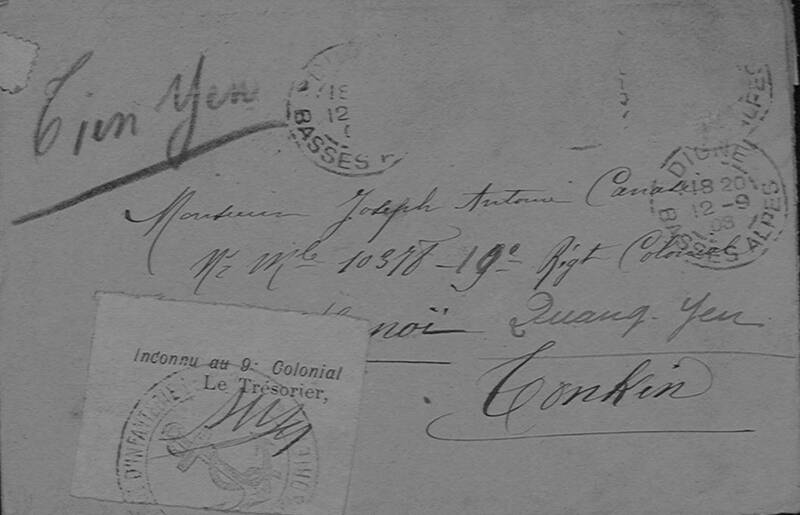 Tien Yen
18
12
BASSES
DIGNE
18 20
12-9
08
BASSES ALPES
ALPES
Monsieur Joseph Antoine
No Mle 10378 - 19e Rigt Colonial
Quang-Yen
Tonkin
Inconnu au 9e Colonial
Le Trésorier,
D'INFANTERIE